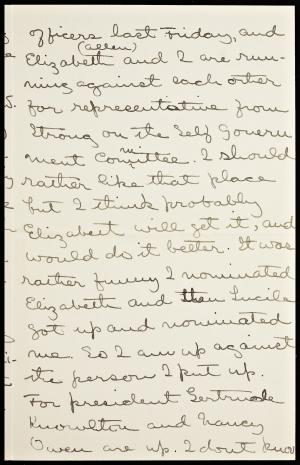 officers last Friday, and
(allen)
Elizabeth and I are run-
ning against each other
for representative from
Strong on the Self Govern
ment Committee. I should
rather like that place
but I think probably
Elizabeth will get it, and
would do it better. It was
rather funny I nominated
Elizabeth and then Lucile
got up and nominated
me. So I am up against
the person I put up.
For president Gertrude
Knowlton and Nancy
Owen are up. I dont know